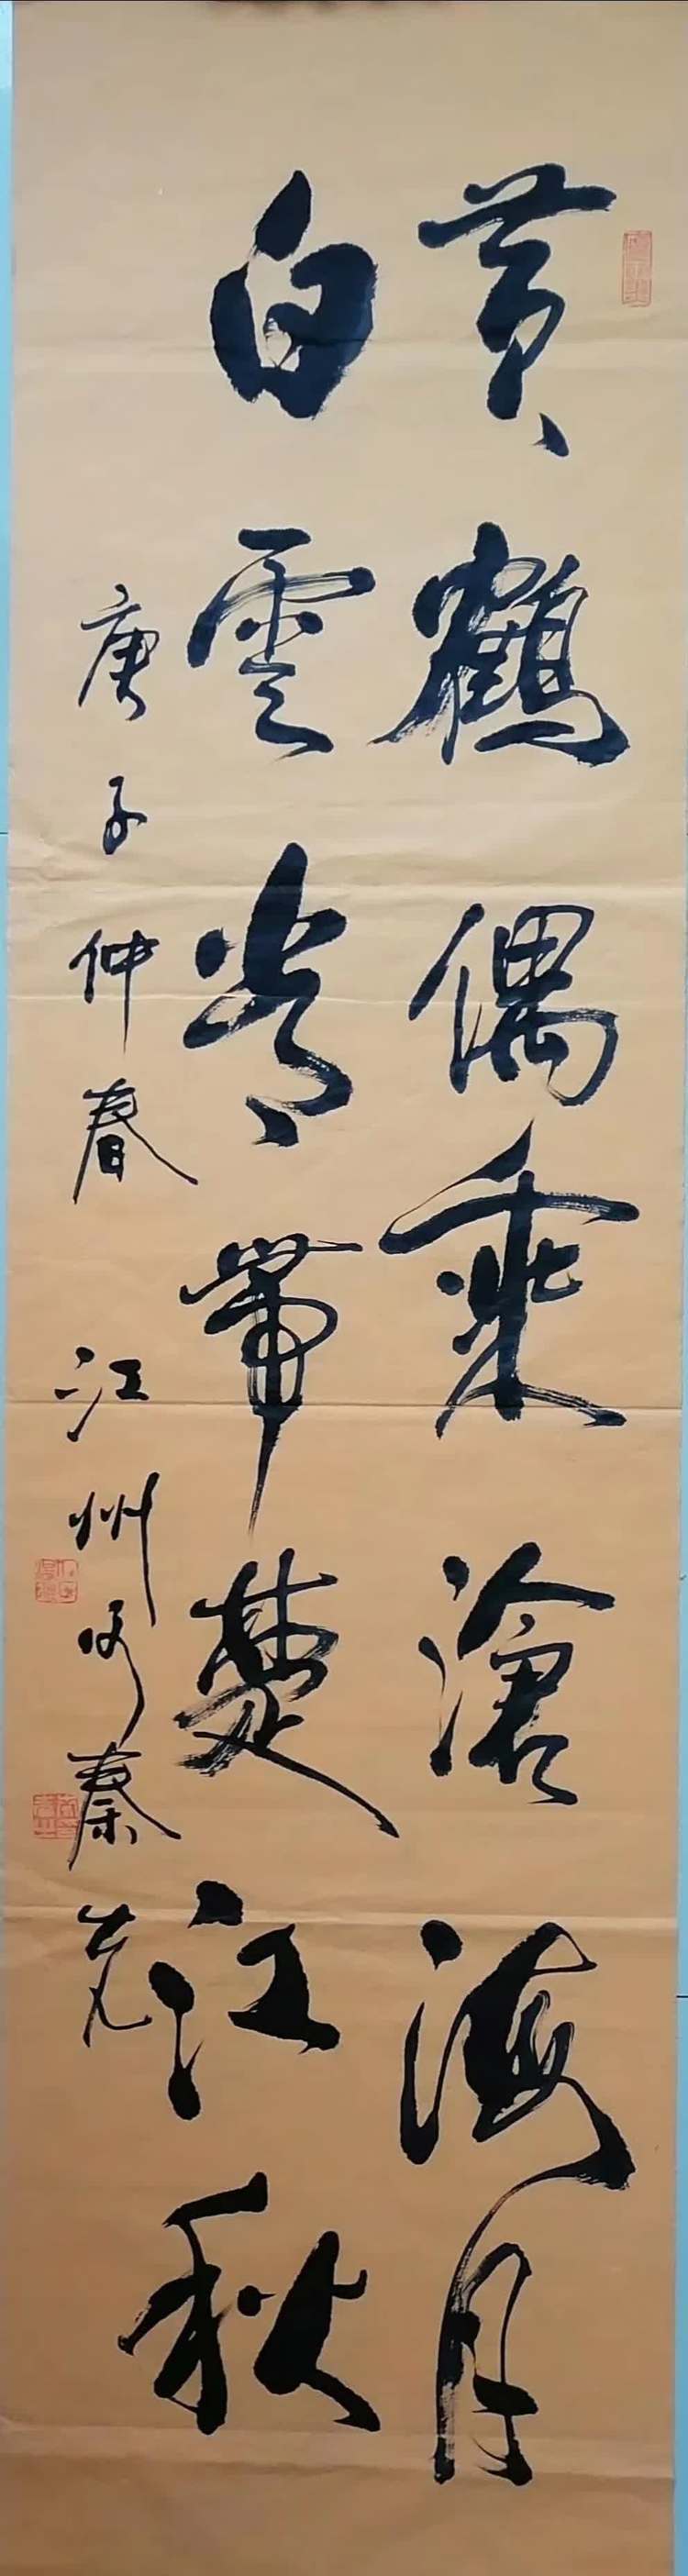 黄鶴偶乘滄海月
白雲常帶楚江秋
庚子仲春 江州 秦